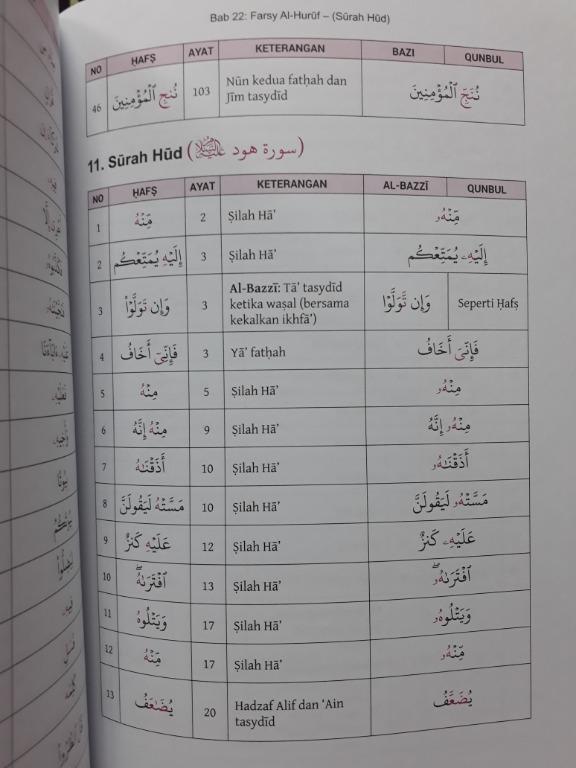 Bab 22: Farsy Al-Hurūf – (Sūrah Hūd)
NO ḤAFṢ AYAT KETERANGAN BAZI QUNBUL
46 نُنجِ ٱلْمُؤْمِنِينَ 103 Nūn kedua fatḥah dan Jīm tasydīd نُنَجِّ ٱلْمُؤْمِنِينَ
11. Sūrah Hūd (سورة هود عليه السلام)
NO ḤAFṢ AYAT KETERANGAN AL-BAZZĪ QUNBUL
1 مِّنْهُ 2 Ṣilah Hā’ مِّنْهُۥ
2 إِلَيْهِ يُمَتِّعْكُم 3 Ṣilah Hā’ إِلَيْهِۦ يُمَتِّعْكُم
3 وَإِن تَوَلَّوْا۟ 3 Al-Bazzī: Tā’ tasydīd ketika waṣal (bersama kekalkan ikhfā’) وَإِن تَّوَلَّوْا۟ Seperti Ḥafṣ
4 فَإِنِّىٓ أَخَافُ 3 Yā’ fatḥah فَإِنِّىَ أَخَافُ
5 مِنْهُ 5 Ṣilah Hā’ مِنْهُۥ
6 مِنْهُ إِنَّهُ 9 Ṣilah Hā’ مِنْهُۥ إِنَّهُ
7 أَذَقْنَـٰهُ 10 Ṣilah Hā’ أَذَقْنَـٰهُۥ
8 مَسَّتْهُ لَيَقُولَنَّ 10 Ṣilah Hā’ مَسَّتْهُۥ لَيَقُولَنَّ
9 عَلَيْهِ كَنزٌ 12 Ṣilah Hā’ عَلَيْهِۦ كَنزٌ
10 ٱفْتَرَىٰهُ ۖ 13 Ṣilah Hā’ ٱفْتَرَىٰهُۥ ۖ
11 وَيَتْلُوهُ 17 Ṣilah Hā’ وَيَتْلُوهُۥ
12 مِّنْهُ 17 Ṣilah Hā’ مِّنْهُۥ
13 يُضَـٰعَفُ 20 Hadzaf Alif dan ‘Ain tasydīd يُضَعَّفُ